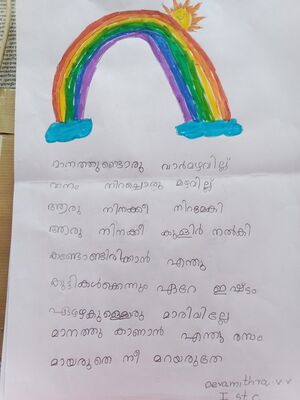 മാനത്തുണ്ടൊരു വാർമഴവില്ല്
വനം നിറച്ചൊരു മഴവില്ല്
ആരു നിനക്കീ നിറമേകി
ആരു നിനക്കീ കുളിർ നൽകി
കണ്ടോണ്ടിരിക്കാൻ എന്തു
കുട്ടികൾക്കെന്നും ഏറേ ഇഷ്ടം
ഏഴഴകുള്ളൊരു മാരിവില്ലേ
മാനത്തു കാണാൻ എന്തു രസം
മായരുതെ നീ മറയരുതേ
devamithra.v.v
I st c